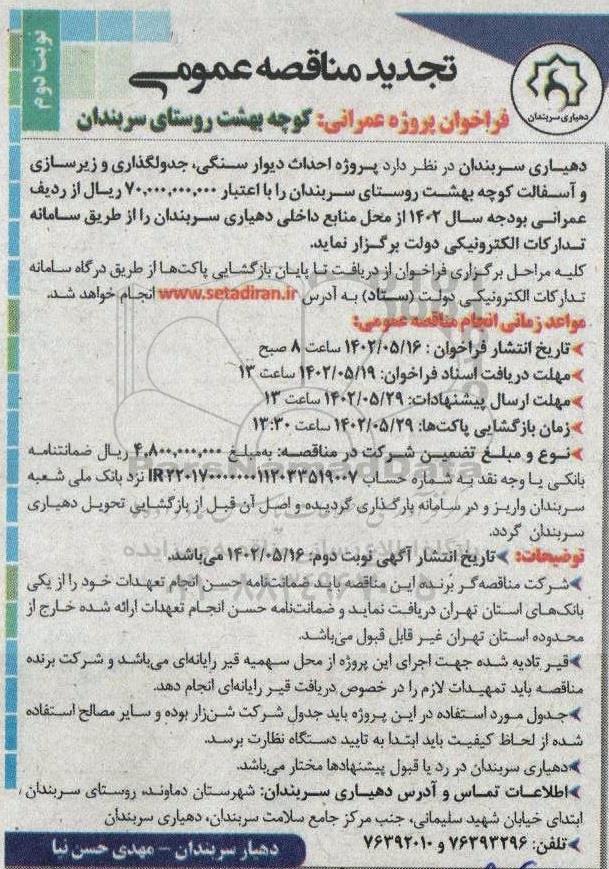 نوبت دوم
دهیاری سربندان
تجدید مناقصه عمومی
فراخوان پروژه عمرانی: کوچه بهشت روستای سربندان
دهیاری سربندان در نظر دارد پروژه احداث دیوار سنگی، جدولگذاری و زیرسازی
و آسفالت کوچه بهشت روستای سربندان را با اعتبار ۷۰,۰۰۰,۰۰۰,۰۰۰ ریال از ردیف
عمرانی بودجه سال ۱۴۰۲ از محل منابع داخلی دهیاری سربندان را از طریق سامانه
تدارکات الکترونیکی دولت برگزار نماید.
کلیه مراحل برگزاری فراخوان از دریافت تا پایان بازگشایی پاکت‌ها از طریق درگاه سامانه
تدارکات الکترونیکی دولت (ستاد) به آدرس www.setadiran.ir انجام خواهد شد.
مواعد زمانی انجام مناقصه عمومی:
تاریخ انتشار فراخوان : ۱۴۰۲/۰۵/۱۶ ساعت ۸ صبح
مهلت دریافت اسناد فراخوان: ۱۴۰۲/۰۵/۱۹ ساعت ۱۳
مهلت ارسال پیشنهادات: ۱۴۰۲/۰۵/۲۹ ساعت ۱۳
زمان بازگشایی پاکت‌ها: ۱۴۰۲/۰۵/۲۹ ساعت ۱۳:۳۰
نوع و مبلغ تضمین شرکت در مناقصه: به‌مبلغ ۴,۸۰۰,۰۰۰,۰۰۰ ریال ضمانتنامه
بانکی یا وجه نقد به شماره حساب IR۲۲۰۱۷۰۰۰۰۰۰۰۱۱۲۰۳۳۵۱۹۰۰۷ نزد بانک ملی شعبه
سربندان واریز و در سامانه بارگذاری گردیده و اصل آن قبل از بازگشایی تحویل دهیاری
سربندان گردد.
توضیحات: تاریخ انتشار آگهی نوبت دوم: ۱۴۰۲/۰۵/۱۶ می‌باشد.
شرکت مناقصه‌گر برنده این مناقصه باید ضمانت‌نامه حسن انجام تعهدات خود را از یکی
بانک‌های استان تهران دریافت نماید و ضمانت‌نامه حسن انجام تعهدات ارائه شده خارج از
محدوده استان تهران غیر قابل قبول می‌باشد.
قیر تادیه شده جهت اجرای این پروژه از محل سهمیه قیر رایانه‌ای می‌باشد و شرکت برنده
مناقصه باید تمهیدات لازم را در خصوص دریافت قیر رایانه‌ای انجام دهد.
جدول مورد استفاده در این پروژه باید جدول شرکت شن‌زار بوده و سایر مصالح استفاده
شده از لحاظ کیفیت باید ابتدا به تایید دستگاه نظارت برسد.
دهیاری سربندان در رد یا قبول پیشنهادها مختار می‌باشد.
اطلاعات تماس و آدرس دهیاری سربندان: شهرستان دماوند، روستای سربندان،
ابتدای خیابان شهید سلیمانی، جنب مرکز جامع سلامت سربندان، دهیاری سربندان
تلفن: ۷۶۳۹۳۲۹۶ و ۷۶۳۹۲۰۱۰
دهیار سربندان – مهدی حسن نیا